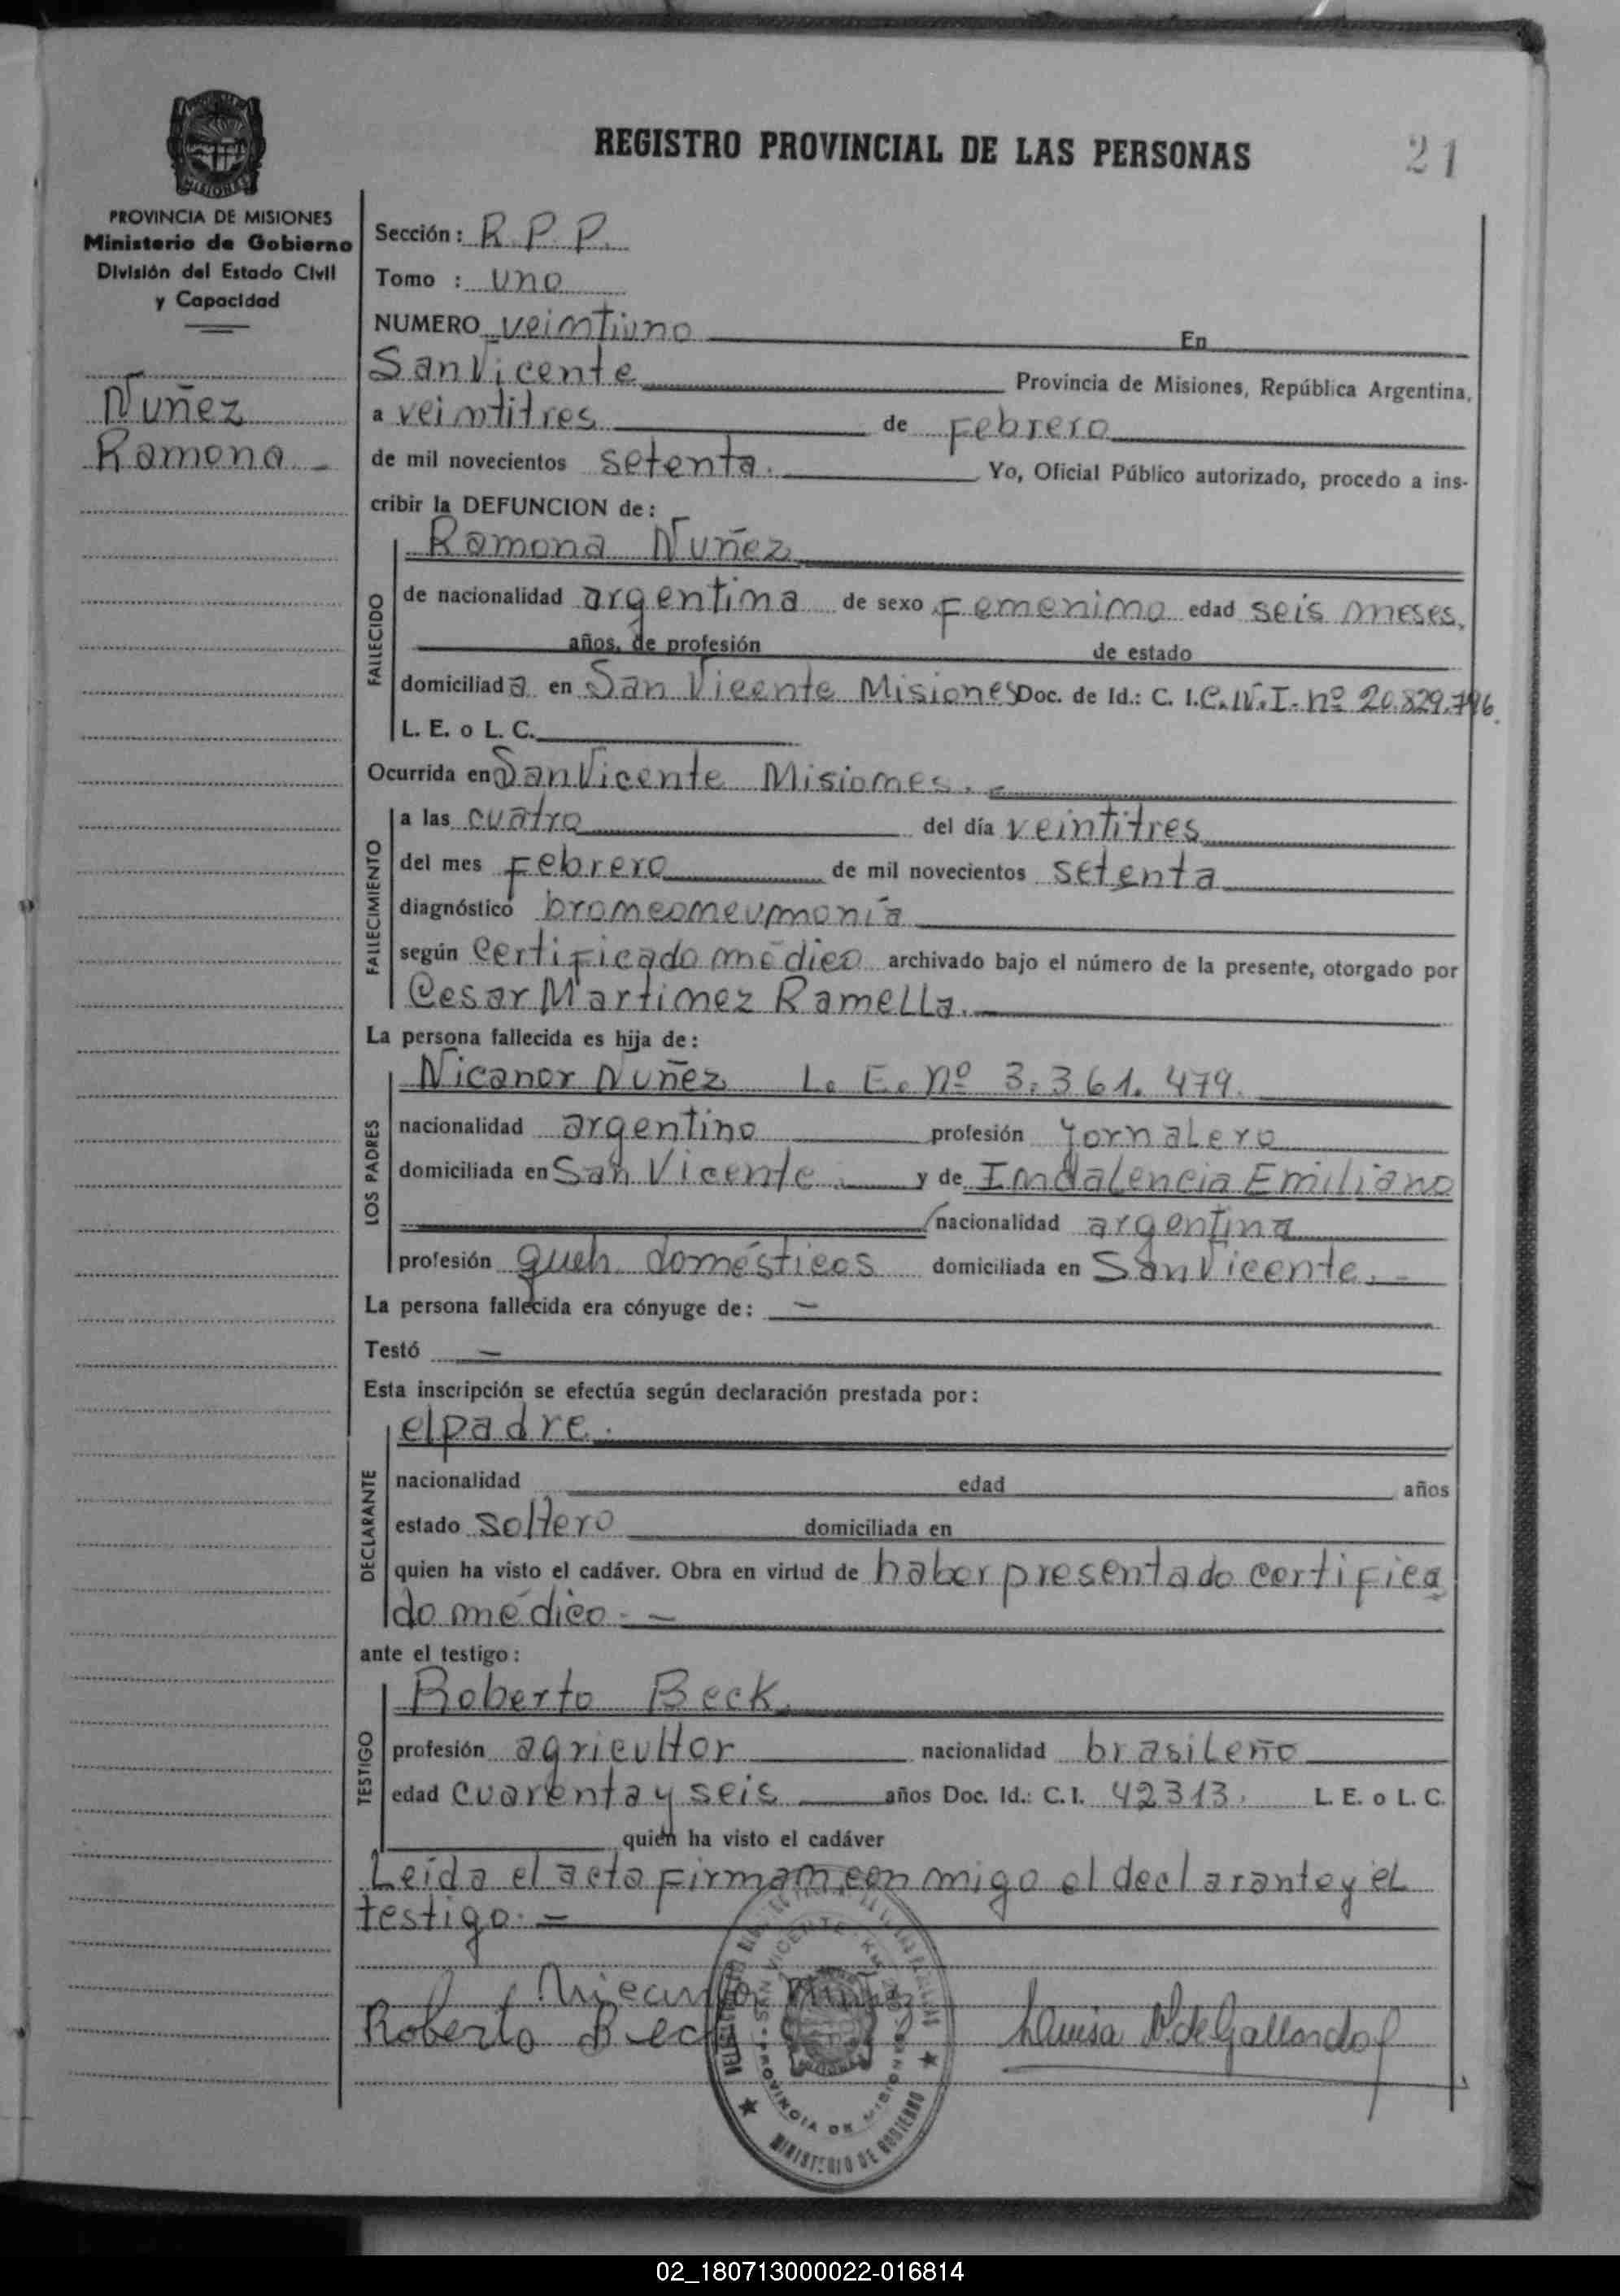 REGISTRO PROVINCIAL DE LAS PERSONAS
21
PROVINCIA DE MISIONES
Ministerio de Gobierno
División del Estado Civil
y Capacidad
Nuñez
Ramona
Sección: R. P. P.
Tomo : uno
NUMERO veimtiuno En
San Vicente Provincia de Misiones, República Argentina,
a veimtitres de Febrero
de mil novecientos setenta. Yo, Oficial Público autorizado, procedo a ins-
cribir la DEFUNCION de:
FALLECIDO
Ramona Nuñez
de nacionalidad argentima de sexo Femenimo edad seis meses,
años, de profesión de estado
domiciliada en San Vicente Misiones Doc. de Id.: C. I. C.N.I. nº 20.829.746.
L. E. o L. C.
Ocurrida en San Vicente Misiomes.
FALLECIMIENTO
a las cuatro del día veintitres
del mes Febrero de mil novecientos setenta
diagnóstico bromcomeumonía
según Certificado médico archivado bajo el número de la presente, otorgado por
Cesar Martimez Ramella.
La persona fallecida es hija de:
LOS PADRES
Nicanor Nuñez L. E. nº 3.361.479.
nacionalidad argentino profesión Jornalero
domiciliada en San Vicente y de Imdalencia Emiliano
nacionalidad argentina
profesión queh. domésticos domiciliada en San Vicente.
La persona fallecida era cónyuge de: –
Testó –
Esta inscripción se efectúa según declaración prestada por:
DECLARANTE
el padre.
nacionalidad edad años
estado soltero domiciliada en
quien ha visto el cadáver. Obra en virtud de haber presentado certifica
do médico. –
ante el testigo:
TESTIGO
Roberto Beck.
profesión agricultor nacionalidad brasileño
edad cuarenta y seis años Doc. Id.: C. I. 42313. L. E. o L. C.
quien ha visto el cadáver
Leida el acta firmam con migo el declarante y el
testigo. –
Roberto Beck
Luisa N de Gallardo
SAN VICENTE
PROVINCIA DE MISIONES
MINISTERIO DE GOBIERNO
02_180713000022-016814